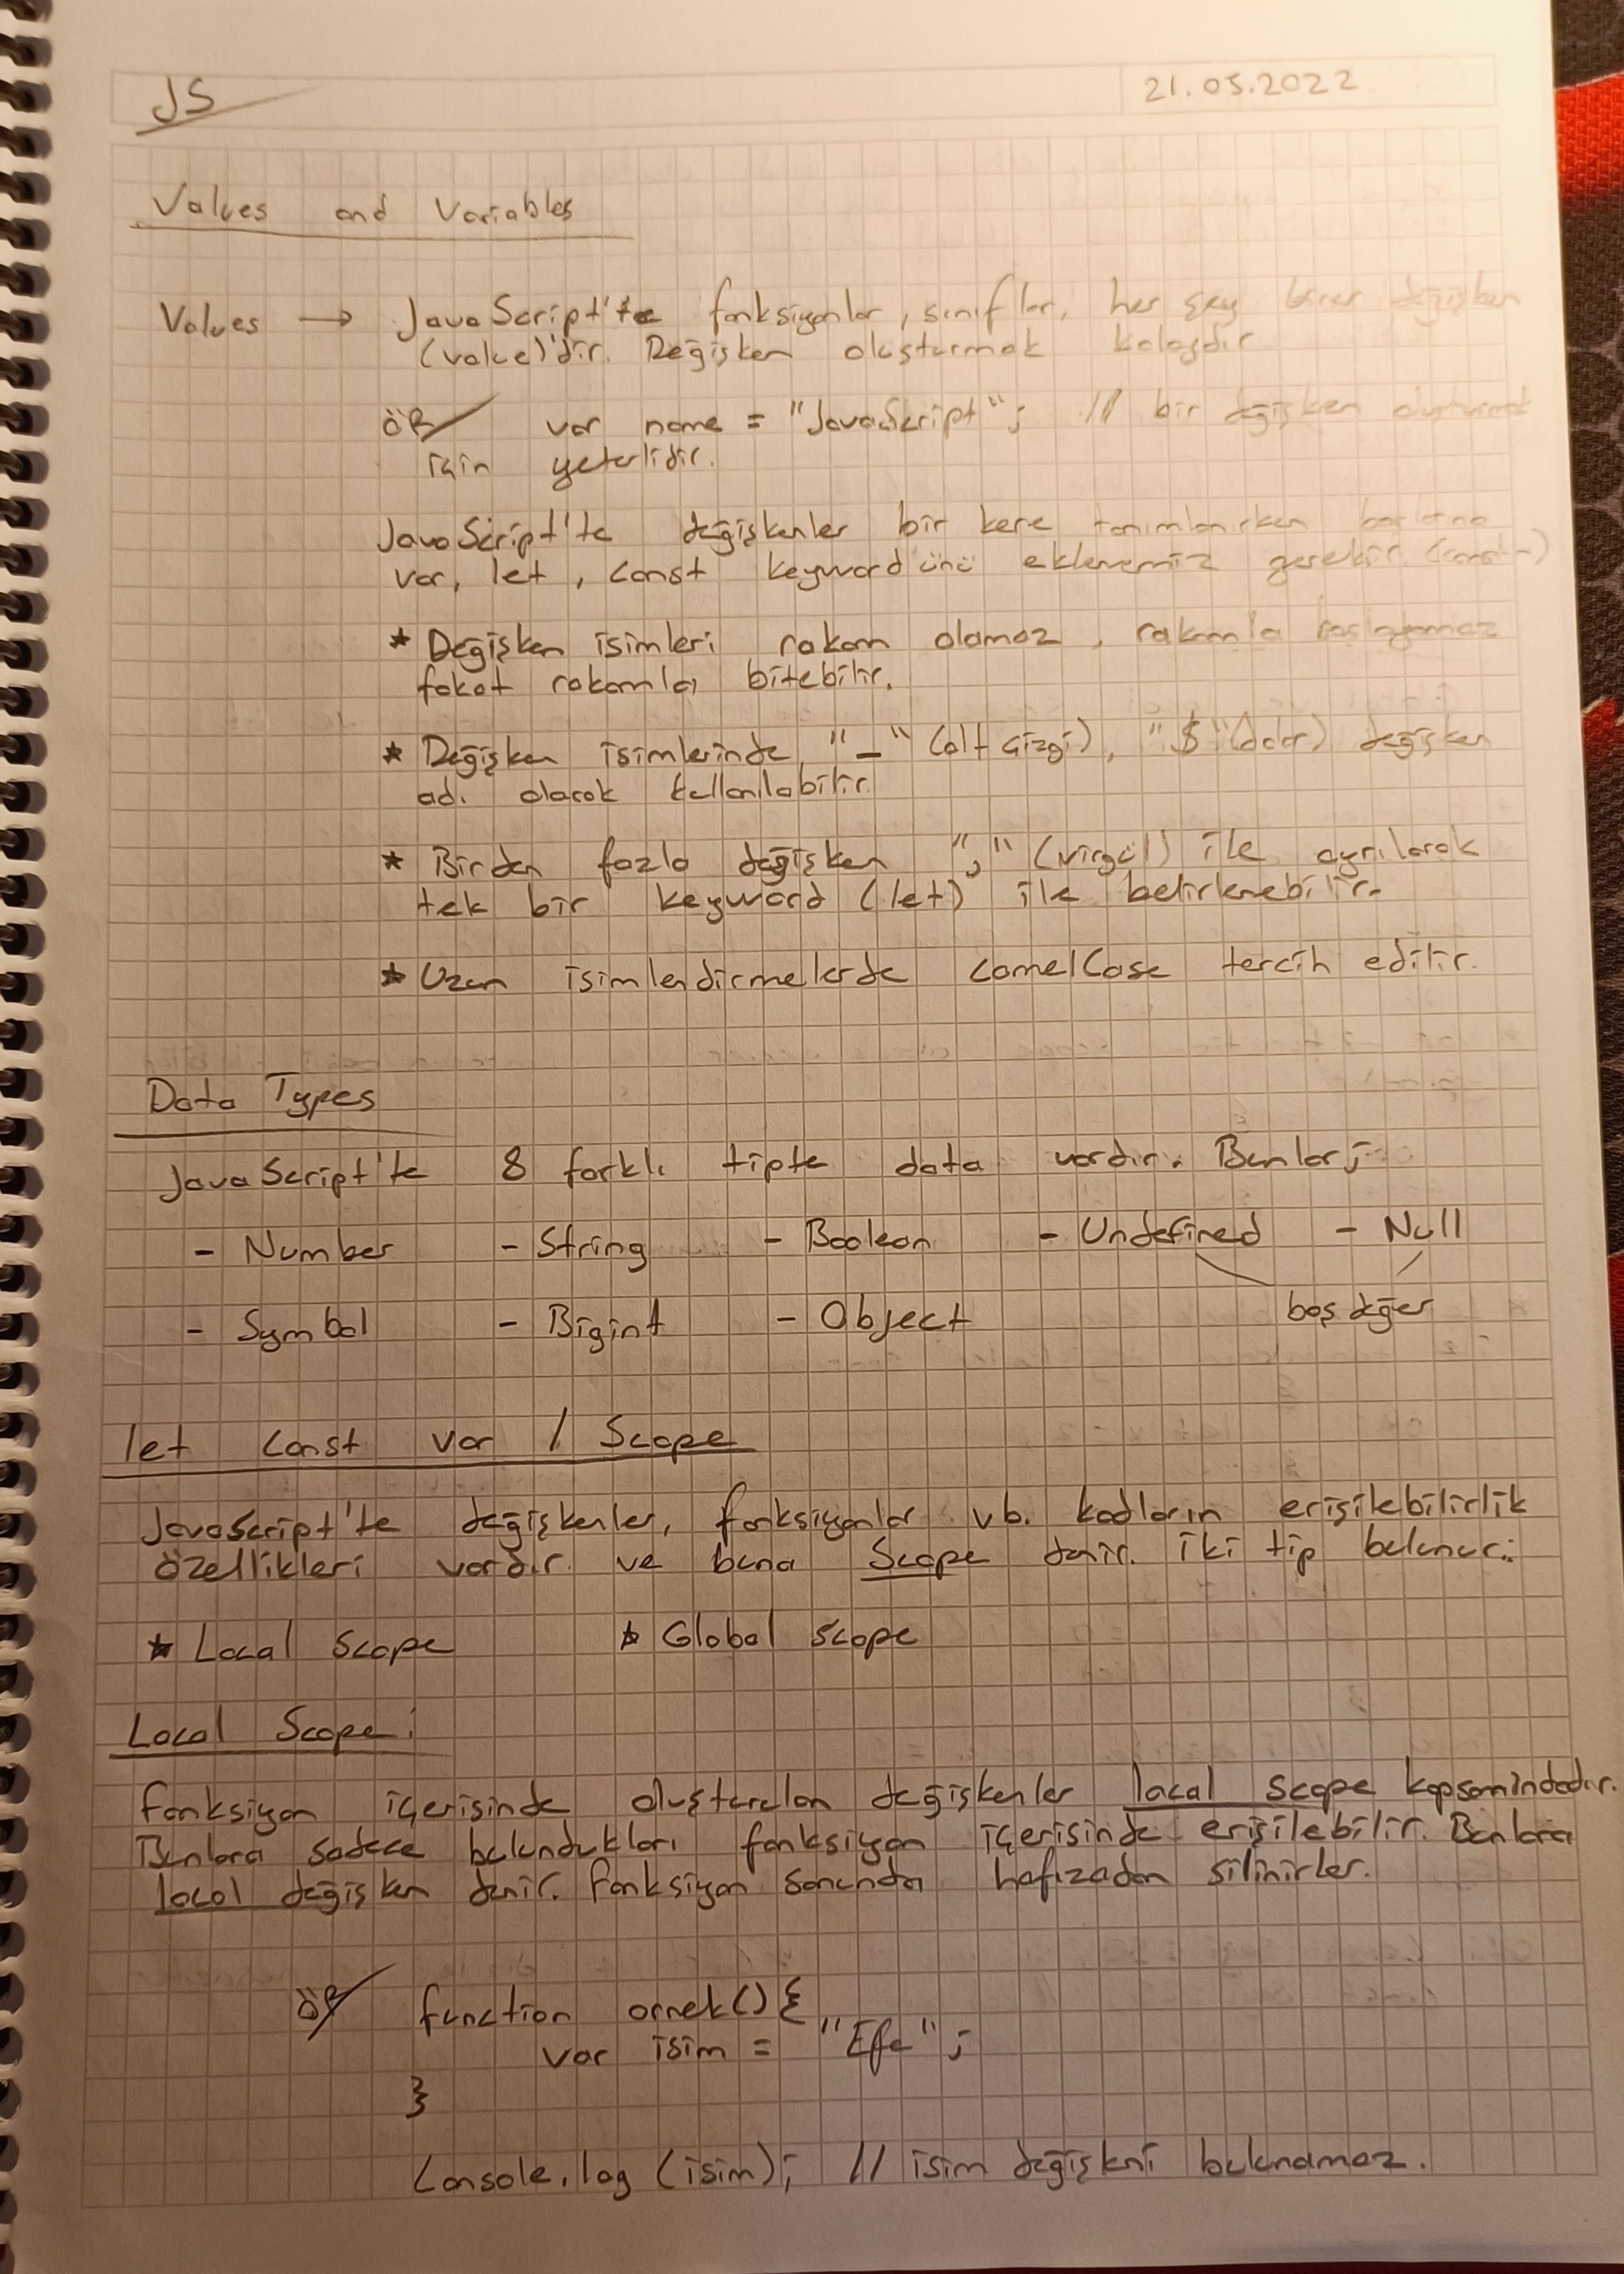 JS
21.05.2022
Values and Variables
Values → JavaScript'te fonksiyonlar, sınıflar, her şey birer değişken
(value)'dir. Değişken oluşturmak kolaydır
ÖR/ var name = "JavaScript"; // bir değişken oluşturmak
için yeterlidir.
JavaScript'te değişkenler bir kere tanımlanırken başlarına
var, let, const keyword'ünü eklememiz gerekir.
* Değişken isimleri rakam olamaz, rakamla başlayamaz
fakat rakamla bitebilir.
* Değişken isimlerinde "_" (alt çizgi), "$" (dolar) değişken
adı olarak kullanılabilir.
* Birden fazla değişken "," (virgül) ile ayrılarak
tek bir keyword (let) ile belirlenebilir.
* Uzun isimlendirmelerde camelCase tercih edilir.
Data Types
JavaScript'te 8 farklı tipte data vardır. Bunlar;
- Number - String - Boolean - Undefined - Null
- Symbol - Bigint - Object boş değer
let const var / Scope
JavaScript'te değişkenler, fonksiyonlar vb. kodların erişilebilirlik
özellikleri vardır. ve buna Scope denir. İki tip bulunur:
* Local Scope * Global Scope
Local Scope:
Fonksiyon içerisinde oluşturulan değişkenler local scope kapsamındadır.
Bunlara sadece bulundukları fonksiyon içerisinde erişilebilir. Bunlara
local değişken denir. Fonksiyon sonunda hafızadan silinirler.
ÖR/ function ornek() {
var isim = "Efe";
}
Console.log (isim); // isim değişkeni bulunamaz.